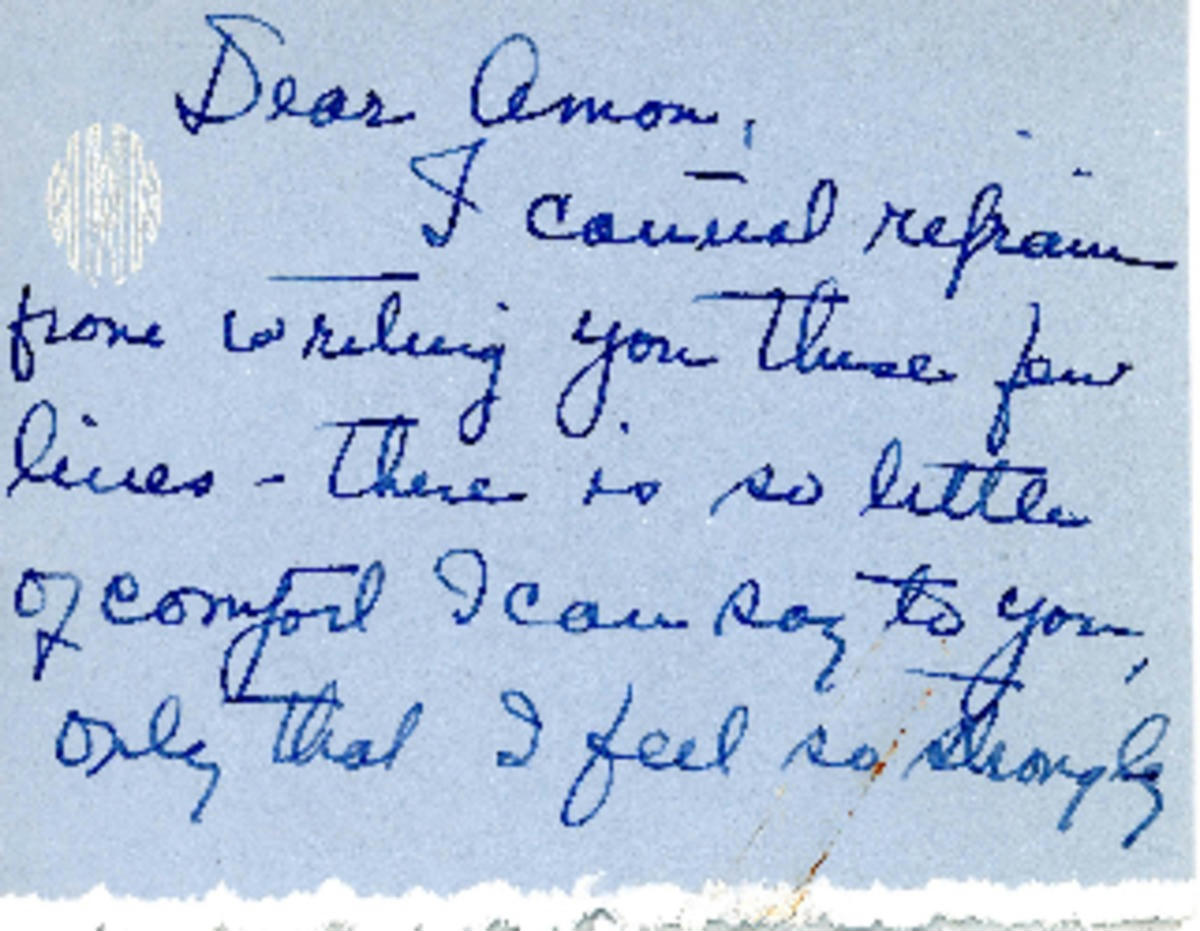 Dear Amon,
I cannot refrain
from writing you these few
lines - there is so little
of comfort I can say to you,
only that I feel so strongly